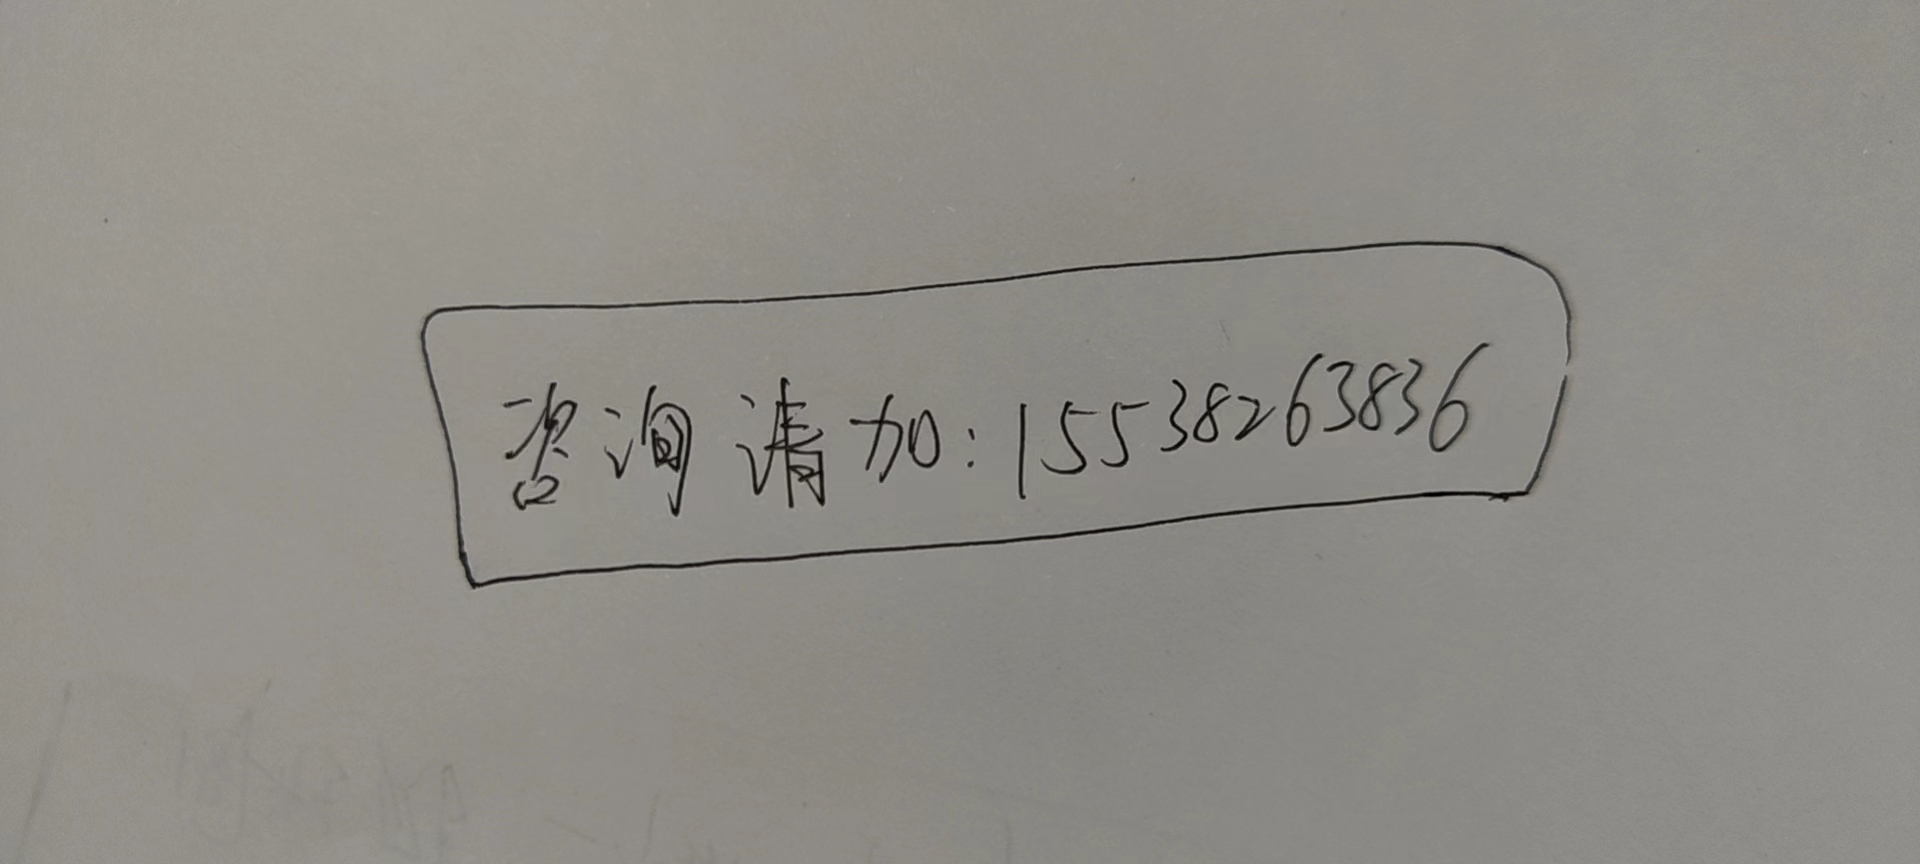 咨询请加:15538263836